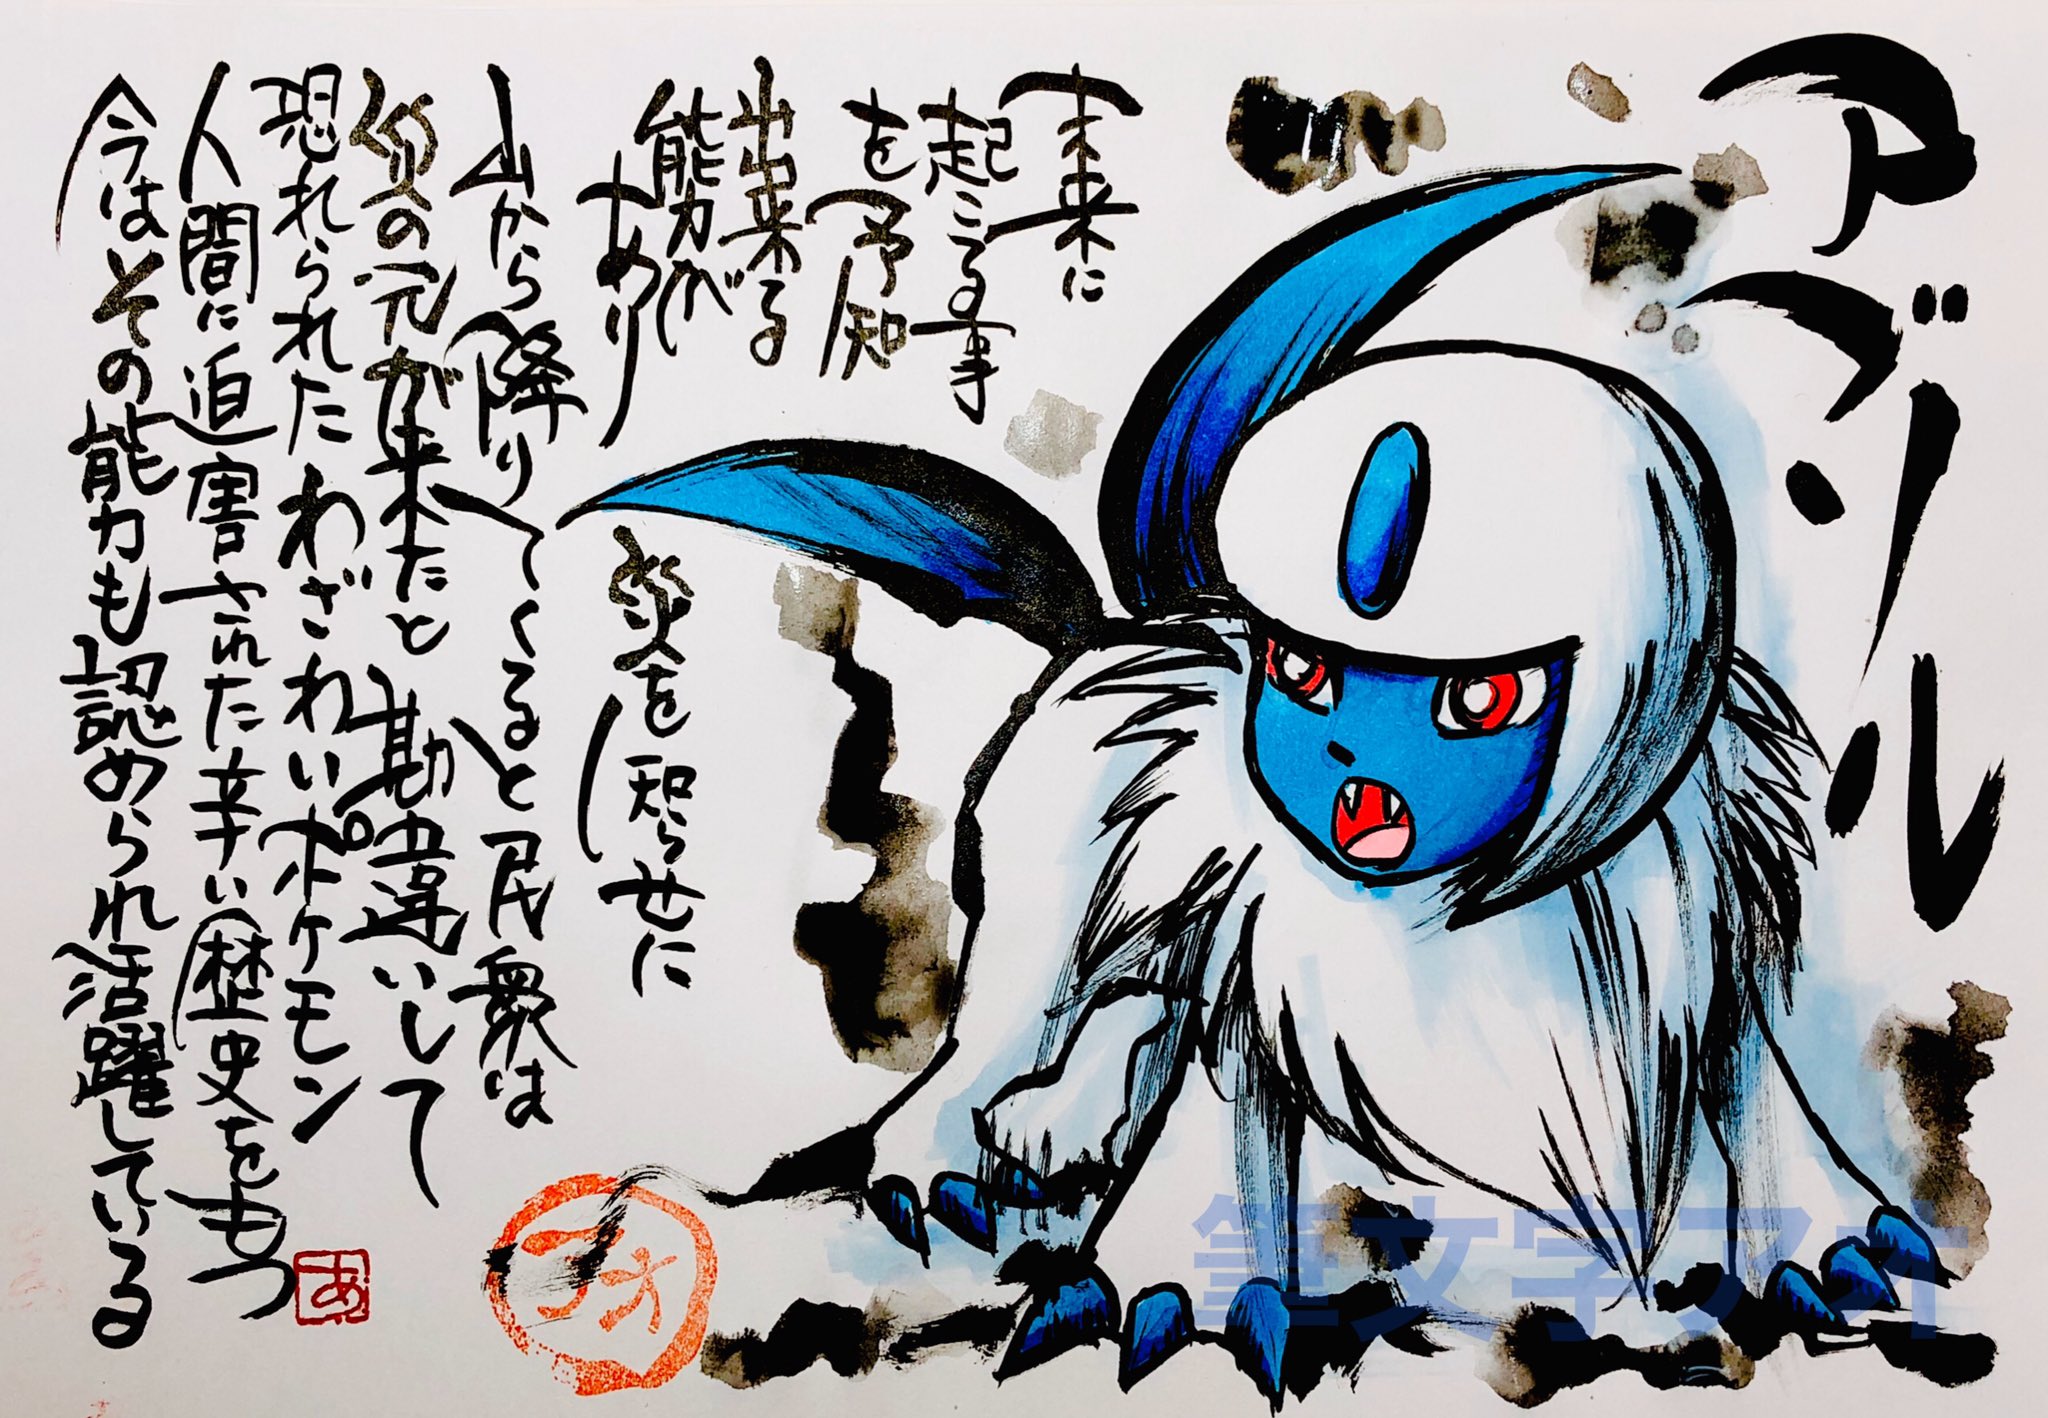 アブソル
未来に
起こる事
を予知
出来る
能力が
あり
災を知らせに
山から降りてくると民衆は
災の元が来たと勘違いして
恐れられたわざわいポケモン
人間に迫害された辛い歴史をもつ
今はその能力も認められ活躍している
あ
アオ
筆文字アオ